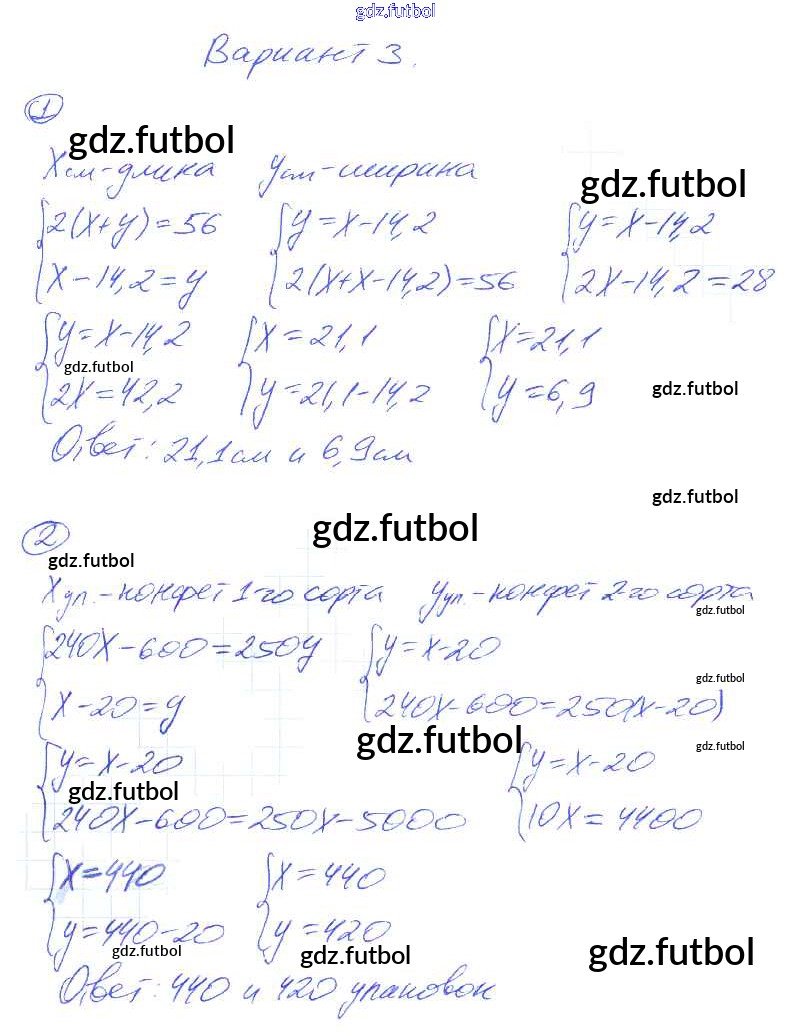 gdz.futbol
Вариант 3.
1
gdz.futbol
Xсм-длина Yсм-ширина
gdz.futbol
2(X+y)=56 y=X-14,2 y=X-14,2
X-14,2=y 2(X+X-14,2)=56 2X-14,2=28
y=X-14,2 X=21,1 X=21,1
gdz.futbol
2X=42,2 y=21,1-14,2 y=6,9
gdz.futbol
Ответ: 21,1см и 6,9см
gdz.futbol
2
gdz.futbol
gdz.futbol
Xуп.-конфет 1-го сорта Yуп.-конфет 2-го сорта
gdz.futbol
240X-600=250y y=X-20
gdz.futbol
X-20=y 240X-600=250(X-20)
gdz.futbol
gdz.futbol
y=X-20 y=X-20
gdz.futbol
240X-600=250X-5000 10X=4400
X=440 X=440
y=440-20 y=420
gdz.futbol
gdz.futbol
gdz.futbol
Ответ: 440 и 420 упаковок